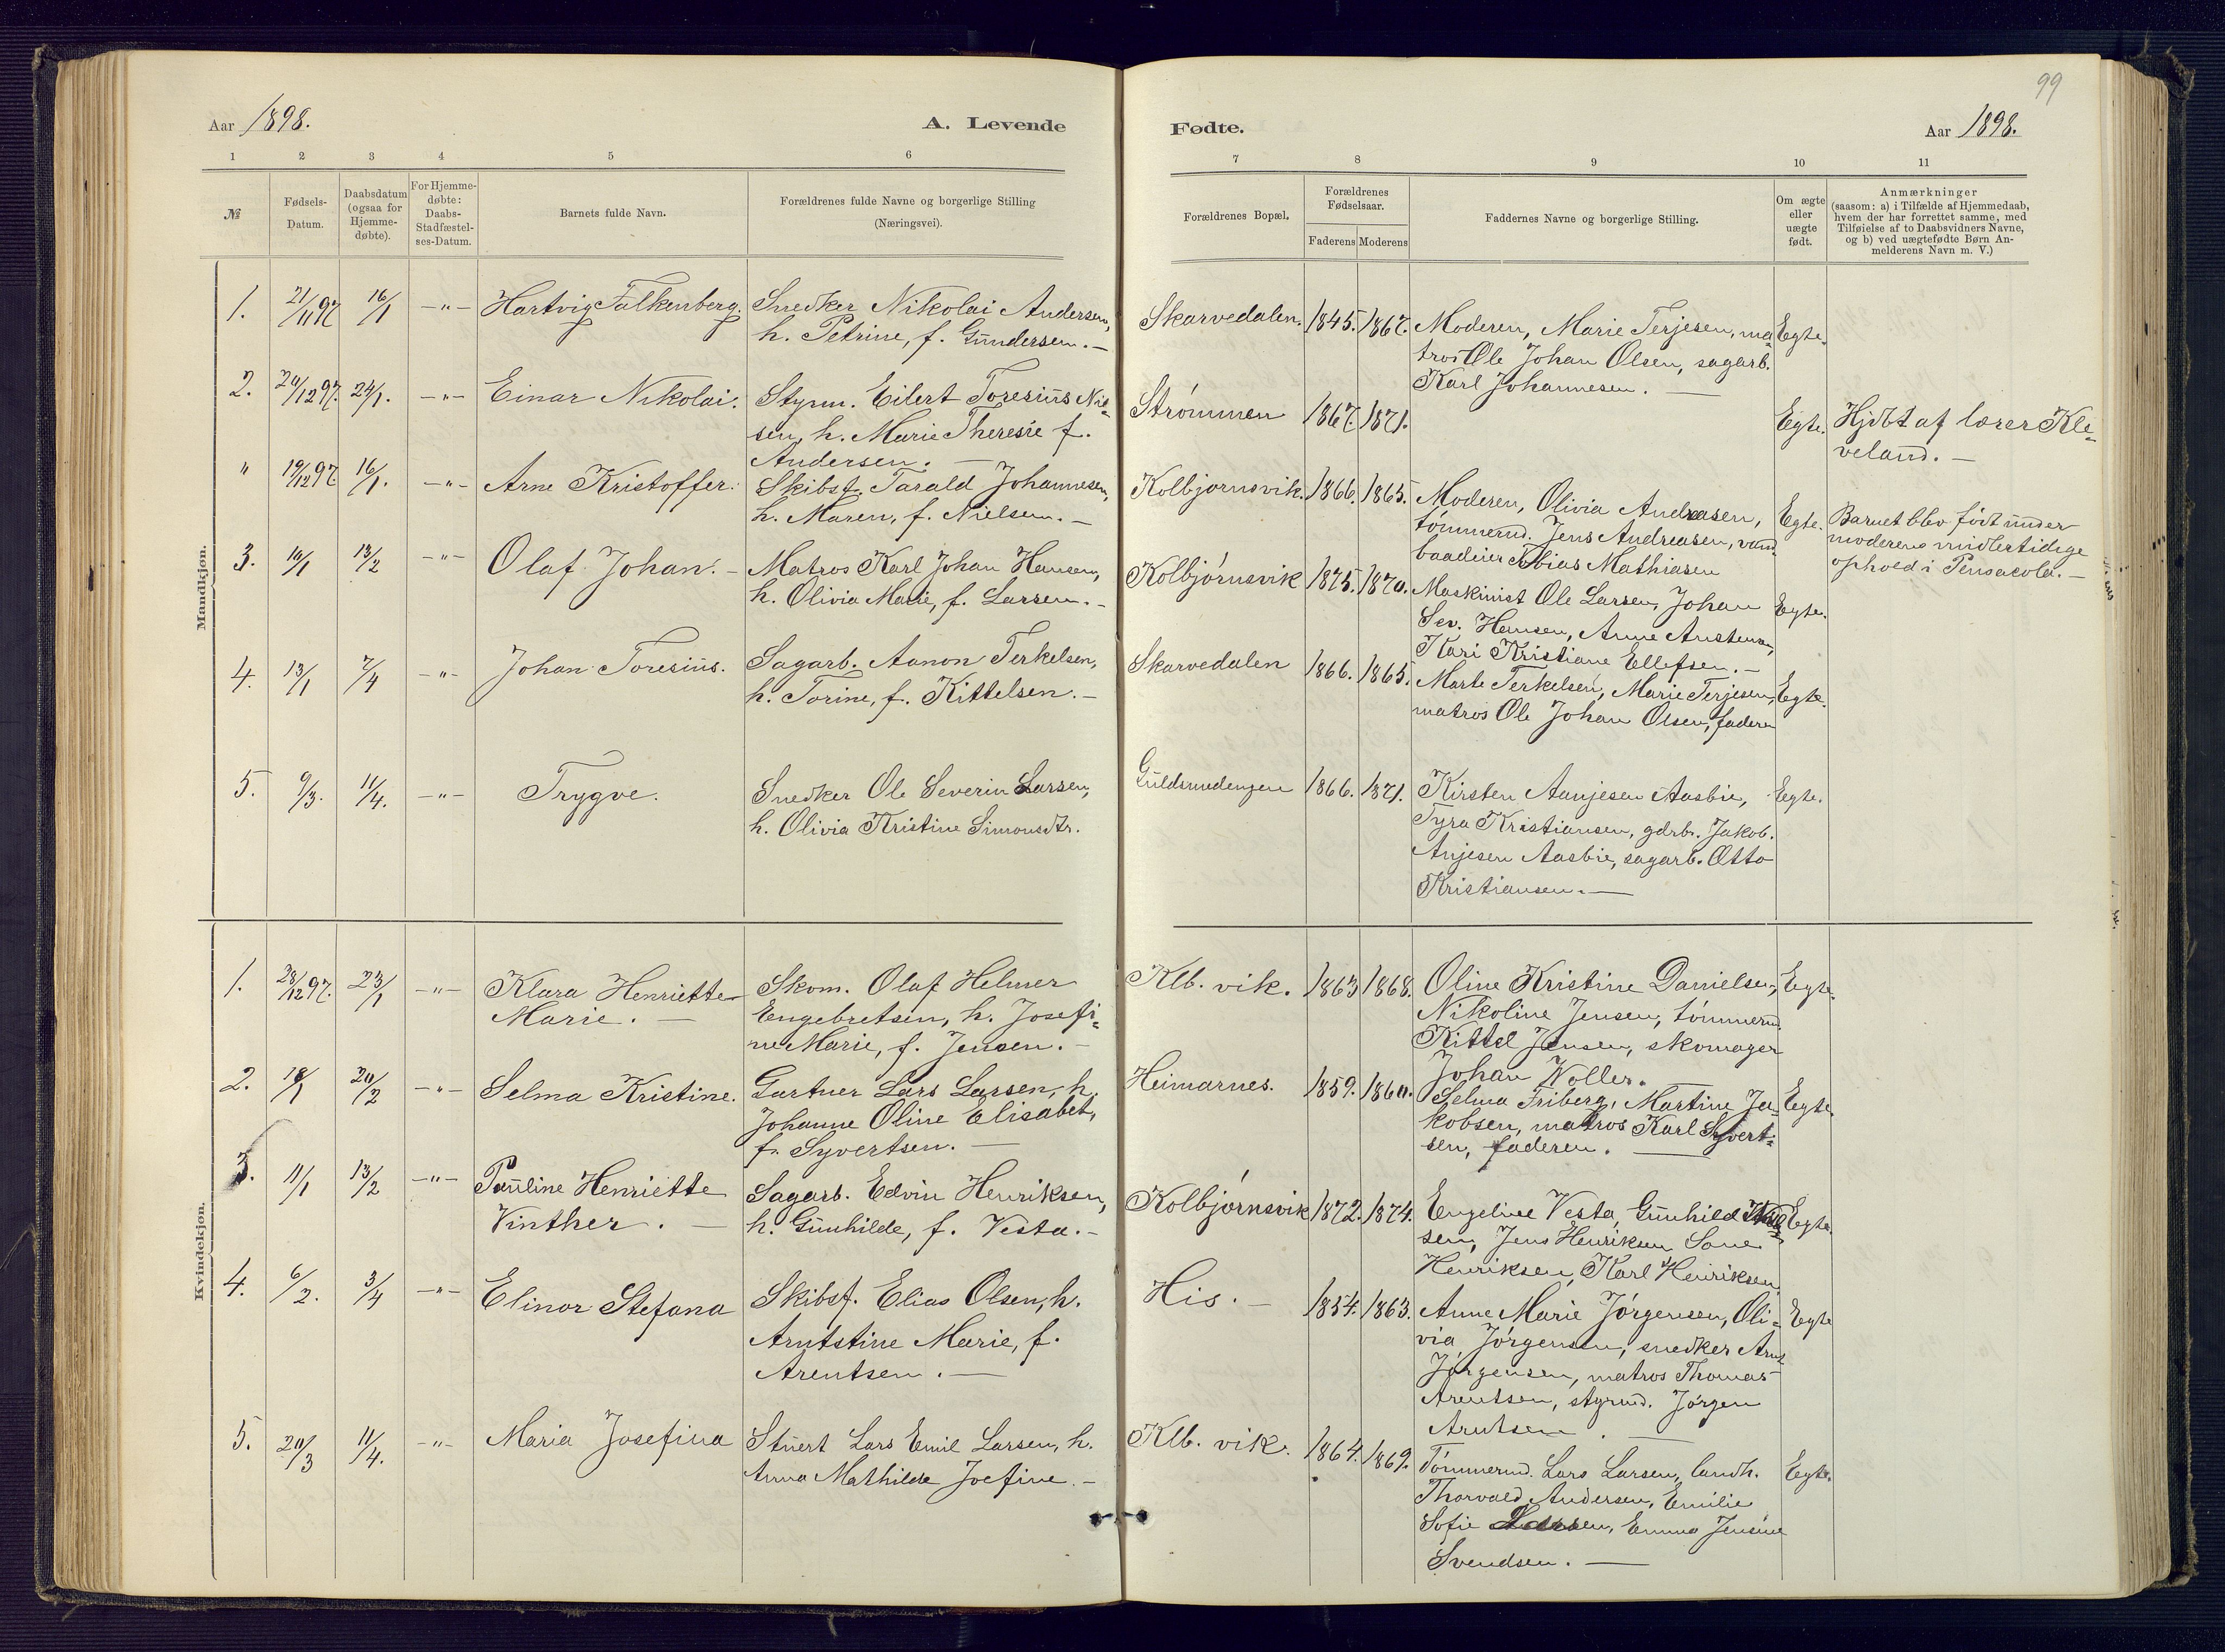 99
Aar 1898.
A. Levende
Fødte.
Aar 1898.
1 2 3 4 5 6
7 8 9 10 11
№
Fødsels-
Datum.
Daabsdatum
(ogsaa for
Hjemme-
døbte).
For Hjemme-
døbte:
Daabs-
Stadfæstel-
ses-Datum.
Barnets fulde Navn.
Forældrenes fulde Navne og borgerlige Stilling
(Næringsvei).
Forældrenes Bopæl.
Forældrenes
Fødselsaar.
Faderens Moderens
Faddernes Navne og borgerlige Stilling.
Om ægte
eller
uægte
født.
Anmærkninger
(saasom: a) i Tilfælde af Hjemmedaab,
hvem der har forrettet samme, med
Tilføielse af to Daabsvidners Navne,
og b) ved uægtefødte Børn An-
melderens Navn m. V.)
Mandkjøn.
1. 21/11 97 16/1 -"- Hartvig Falkenberg. Snedker Nikolai Andersen,
h. Petrine, f. Gundersen.-
Skarvedalen. 1845. 1867. Moderen, Marie Terjesen, ma-
tros Ole Johan Olsen, sagarb.
Karl Johannesen.
Egte.
2. 20/12 97. 24/1. -"- Einar Nikolai. Styrm. Eilert Toresius Nil-
sen, h. Marie Theresie f.
Andersen.-
Strømmen 1867. 1871. Egte. Hjdbt af lærer Kle-
veland.-
" 19/12 97. 16/1. -"- Arne Kristoffer. Skibsf. Tarald Johannesen,
h. Maren, f. Nielsen.-
Kolbjørnsvik. 1866. 1865. Moderen, Olivia Andreasen,
tømmermd. Jens Andreasen, vand-
baadeier Tobias Mathiasen
Egte. Barnet blev født under
moderens midlertidige
ophold i Pensacola.-
3. 10/1 13/2 -"- Olaf Johan.- Matros Karl Johan Hansen,
h. Olivia Marie, f. Larsen.-
Kolbjørnsvik 1875. 1870. Maskinist Ole Larsen, Johan
Sev. Hansen, Anne Austensen,
Kari Kristiane Ellefsen.-
Egte.
4. 13/1 7/4 -"- Johan Toresius. Sagarb. Aanon Terkelsen,
h. Torine, f. Kittelsen.-
Skarvedalen 1866. 1865. Marte Terkelsen, Marie Terjesen,
matros Ole Johan Olsen, faderen
Egte.
5. 9/3. 11/4. -"- Trygve. Snedker Ole Severin Larsen,
h. Olivia Kristine Simonsdtr.
Guldsmedengen 1866. 1871. Kirsten Aanjesen Aasbie,
Tyra Kristiansen, gdrb. Jakob
Anjesen Aasbie, sagarb. Otto
Kristiansen.-
Egte.
Kvindekjøn.
1. 28/12 97. 23/1 -"- Klara Henriette
Marie.-
Skom. Olaf Helmer
Engebretsen, h. Josefi-
ne Marie, f. Jensen.-
Klb. vik. 1863 1868. Oline Kristine Danielsen,
Nikoline Jensen, tømmermd.
Kittel Jensen, skomager
Johan Woller.
Egte.
2. 18/1 20/2 -"- Selma Kristine. Gartner Lars Larsen, h.
Johanne Oline Elisabet,
f. Syvertsen.-
Heimarnes. 1859. 1860. Selma Friberg, Martine Ja-
kobsen, matros Karl Syvert-
sen, faderen.
Egte.
3. 11/1 13/2 -"- Pauline Henriette
Vinther.-
Sagarb. Edvin Henriksen,
h. Gunhilde, f. Vesta.-
Kolbjørnsvik 1872. 1874. Engeline Vesta, Gunhild
sen, Jens Henriksen
Henriksen, Karl Henriksen,
Egte.
4. 6/2. 3/4 -"- Elinor Stefana Skibsf. Elias Olsen, h.
Arntstine Marie, f.
Arentsen.-
His.- 1854. 1863. Anne Marie Jørgensen, Oli-
via Jørgensen, snedker Arnt
Jørgensen, matros Thomas
Arentsen, styrmd. Jørgen
Arntsen.
Egte
5. 20/3 11/4. -"- Maria Josefina Stuert Lars Emil Larsen, h.
Anna Mathilde Joefine.-
Klb. vik. 1864. 1869. Tømmermd. Lars Larsen, landh.
Thorvald Andersen, Emilie
Sofie Larsen, Emma Jensine
Svendsen.-
Egte.